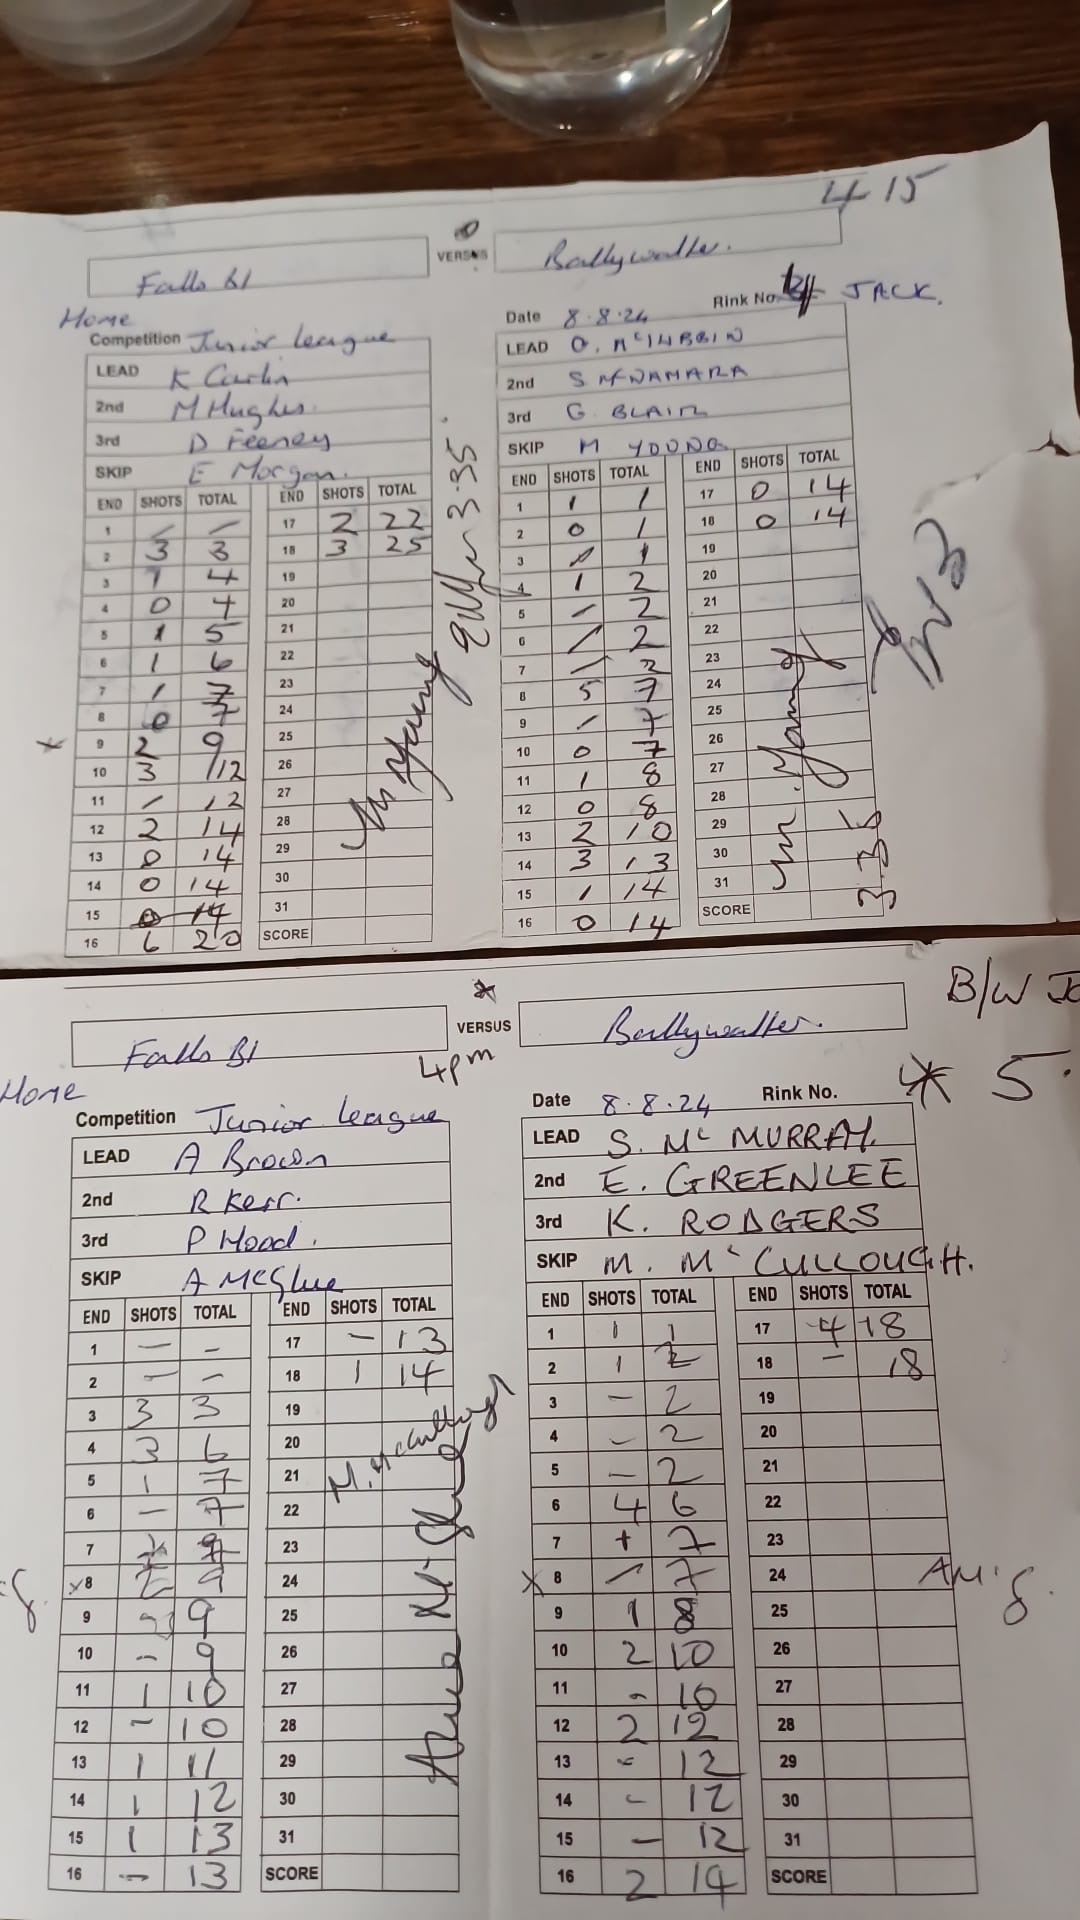 4 15
Falls B1
VERSUS
Ballywalter.
Home
Competition Junior League
Date 8.8.24
Rink No. 4 JACK.
LEAD K Carlin
2nd M Hughes.
3rd D Feeney
SKIP E Morgan.
LEAD O. McKIBBIN
2nd S McNAMARA
3rd G BLAIR
SKIP M YOUNG
END SHOTS TOTAL END SHOTS TOTAL
1 - - 17 2 22
2 3 3 18 3 25
3 1 4 19
4 0 4 20
5 1 5 21
6 1 6 22
7 1 7 23
8 0 7 24
x 9 2 9 25
10 3 12 26
11 / 12 27
12 2 14 28
13 0 14 29
14 0 14 30
15 0 14 31
16 6 20 SCORE
END SHOTS TOTAL END SHOTS TOTAL
1 1 1 17 0 14
2 0 1 18 0 14
3 0 1 19
4 1 2 20
5 - 2 21
6 / 2 22
7 - 2 23
8 5 7 24
9 - 7 25
10 0 7 26
11 1 8 27
12 0 8 28
13 2 10 29
14 3 13 30
15 1 14 31
16 0 14 SCORE
3.35
M Young
M. Young
3.35
B/W
Falls B1
VERSUS
Ballywalter.
4pm
Home
Competition Junior League
Date 8.8.24
Rink No. 5.
LEAD A Brown
2nd R Kerr.
3rd P Hood.
SKIP A McGlue
LEAD S. Mc MURRAY.
2nd E. GREENLEE
3rd K. RODGERS
SKIP M. Mc CULLOUGH.
END SHOTS TOTAL END SHOTS TOTAL
1 - - 17 - 13
2 - - 18 1 14
3 3 3 19
4 3 6 20
5 1 7 21
6 - 7 22
7 9 23
x8 2 9 24
9 - 9 25
10 - 9 26
11 1 10 27
12 - 10 28
13 1 11 29
14 1 12 30
15 1 13 31
16 - 13 SCORE
END SHOTS TOTAL END SHOTS TOTAL
1 1 1 17 4 18
2 1 2 18 - 18
3 - 2 19
4 - 2 20
5 - 2 21
6 4 6 22
7 + 7 23
x 8 - 7 24
9 1 8 25
10 2 10 26
11 - 10 27
12 2 12 28
13 - 12 29
14 - 12 30
15 - 12 31
16 2 14 SCORE
M. McCullough
AM.G.